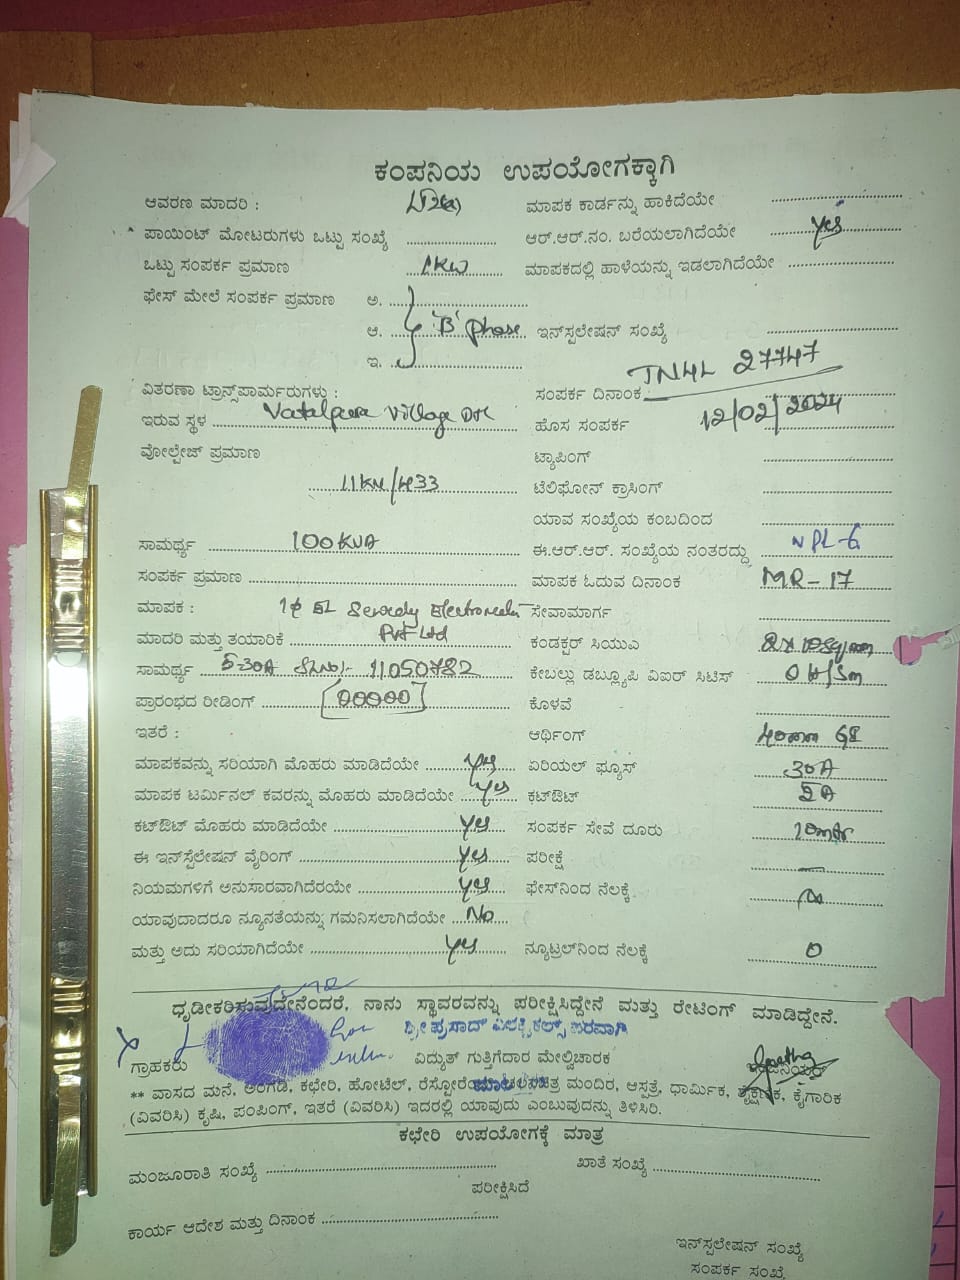 ಕಂಪನಿಯ ಉಪಯೋಗಕ್ಕಾಗಿ
ಆವರಣ ಮಾದರಿ : ಮಾಪಕ ಕಾರ್ಡನ್ನು ಹಾಕಿದೆಯೇ
ಪಾಯಿಂಟ್ ಮೋಟರುಗಳು ಒಟ್ಟು ಸಂಖ್ಯೆ ಆರ್.ಆರ್.ನಂ. ಬರೆಯಲಾಗಿದೆಯೇ yes
ಒಟ್ಟು ಸಂಪರ್ಕ ಪ್ರಮಾಣ 1KW ಮಾಪಕದಲ್ಲಿ ಹಾಳೆಯನ್ನು ಇಡಲಾಗಿದೆಯೇ
ಫೇಸ್ ಮೇಲೆ ಸಂಪರ್ಕ ಪ್ರಮಾಣ ಅ.
ಆ. 'B' Phase ಇನ್‌ಸ್ಪಲೇಷನ್ ಸಂಖ್ಯೆ
ಇ.
TN4L 27747
ವಿತರಣಾ ಟ್ರಾನ್ಸ್‌ಪಾರ್ಮರುಗಳು : ಸಂಪರ್ಕ ದಿನಾಂಕ
ಇರುವ ಸ್ಥಳ Village ಹೊಸ ಸಂಪರ್ಕ 12/02/2024
ವೋಲ್ಟೇಜ್ ಪ್ರಮಾಣ ಟ್ಯಾಪಿಂಗ್
11KV/433 ಟೆಲಿಫೋನ್ ಕ್ರಾಸಿಂಗ್
ಯಾವ ಸಂಖ್ಯೆಯ ಕಂಬದಿಂದ
ಸಾಮರ್ಥ್ಯ 100KVA ಈ.ಆರ್.ಆರ್. ಸಂಖ್ಯೆಯ ನಂತರದ್ದು NPL-6
ಸಂಪರ್ಕ ಪ್ರಮಾಣ ಮಾಪಕ ಓದುವ ದಿನಾಂಕ MR-17
ಮಾಪಕ : ಸೇವಾಮಾರ್ಗ
ಮಾದರಿ ಮತ್ತು ತಯಾರಿಕೆ Pvt Ltd ಕಂಡಕ್ಟರ್ ಸಿಯುಎ
ಸಾಮರ್ಥ್ಯ 5-30A SLNO:- 11050782 ಕೇಬಲ್ಲು ಡಬ್ಲ್ಯೂಪಿ ವಿಐರ್ ಸಿಟಿಸ್
ಪ್ರಾರಂಭದ ರೀಡಿಂಗ್ 00000 ಕೊಳವೆ
ಇತರೆ : ಆರ್ಥಿಂಗ್ 40mm GI
ಮಾಪಕವನ್ನು ಸರಿಯಾಗಿ ಮೊಹರು ಮಾಡಿದೆಯೇ yes ಏರಿಯಲ್ ಫ್ಯೂಸ್ 30A
ಮಾಪಕ ಟರ್ಮಿನಲ್ ಕವರನ್ನು ಮೊಹರು ಮಾಡಿದೆಯೇ yes ಕಟ್‌ಔಟ್
ಕಟ್‌ಔಟ್ ಮೊಹರು ಮಾಡಿದೆಯೇ yes ಸಂಪರ್ಕ ಸೇವೆ ದೂರು
ಈ ಇನ್‌ಸ್ಟಲೇಶನ್ ವೈರಿಂಗ್ yes ಪರೀಕ್ಷೆ
ನಿಯಮಗಳಿಗೆ ಅನುಸಾರವಾಗಿದೆರಯೇ yes ಫೇಸ್‌ನಿಂದ ನೆಲಕ್ಕೆ
ಯಾವುದಾದರೂ ನ್ಯೂನತೆಯನ್ನು ಗಮನಿಸಲಾಗಿದೆಯೇ No
ಮತ್ತು ಅದು ಸರಿಯಾಗಿದೆಯೇ yes ನ್ಯೂಟ್ರಲ್‌ನಿಂದ ನೆಲಕ್ಕೆ 0
ಧೃಡೀಕರಿಸುವುದೇನೆಂದರೆ, ನಾನು ಸ್ಥಾವರವನ್ನು ಪರೀಕ್ಷಿಸಿದ್ದೇನೆ ಮತ್ತು ರೇಟಿಂಗ್ ಮಾಡಿದ್ದೇನೆ.
ಗ್ರಾಹಕರು ವಿದ್ಯುತ್ ಗುತ್ತಿಗೆದಾರ ಮೇಲ್ವಿಚಾರಕ
** ವಾಸದ ಮನೆ, ಅಂಗಡಿ, ಕಛೇರಿ, ಹೋಟೆಲ್, ಮಂದಿರ, ಆಸ್ಪತ್ರೆ, ಧಾರ್ಮಿಕ, ಶೈಕ್ಷಣಿಕ, ಕೈಗಾರಿಕ
(ವಿವರಿಸಿ) ಕೃಷಿ, ಪಂಪಿಂಗ್, ಇತರೆ (ವಿವರಿಸಿ) ಇದರಲ್ಲಿ ಯಾವುದು ಎಂಬುವುದನ್ನು ತಿಳಿಸಿರಿ.
ಕಛೇರಿ ಉಪಯೋಗಕ್ಕೆ ಮಾತ್ರ
ಮಂಜೂರಾತಿ ಸಂಖ್ಯೆ ಖಾತೆ ಸಂಖ್ಯೆ
ಪರೀಕ್ಷಿಸಿದೆ
ಕಾರ್ಯ ಆದೇಶ ಮತ್ತು ದಿನಾಂಕ
ಇನ್‌ಸ್ಪಲೇಷನ್ ಸಂಖ್ಯೆ
ಸಂಪರ್ಕ ಸಂಖ್ಯೆ